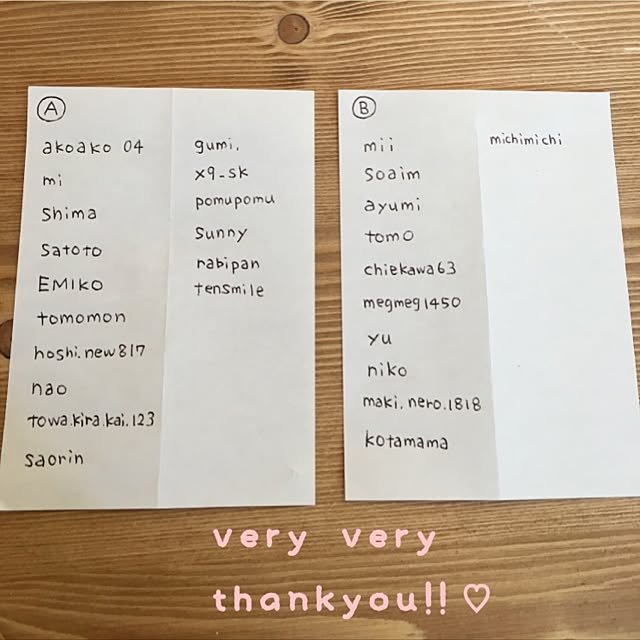 A
akoako 04
mi
Shima
Satoto
EMIKO
tomomon
hoshi.new817
nao
towa.kira.kai.123
saorin
gumi.
x9_sk
pomupomu
sunny
rabipan
tensmile
B
mii
Soaim
ayumi
tomo
chiekawa63
megmeg1450
yu
niko
maki.nero.1818
kotamama
michimichi
very very
thankyou!!♡